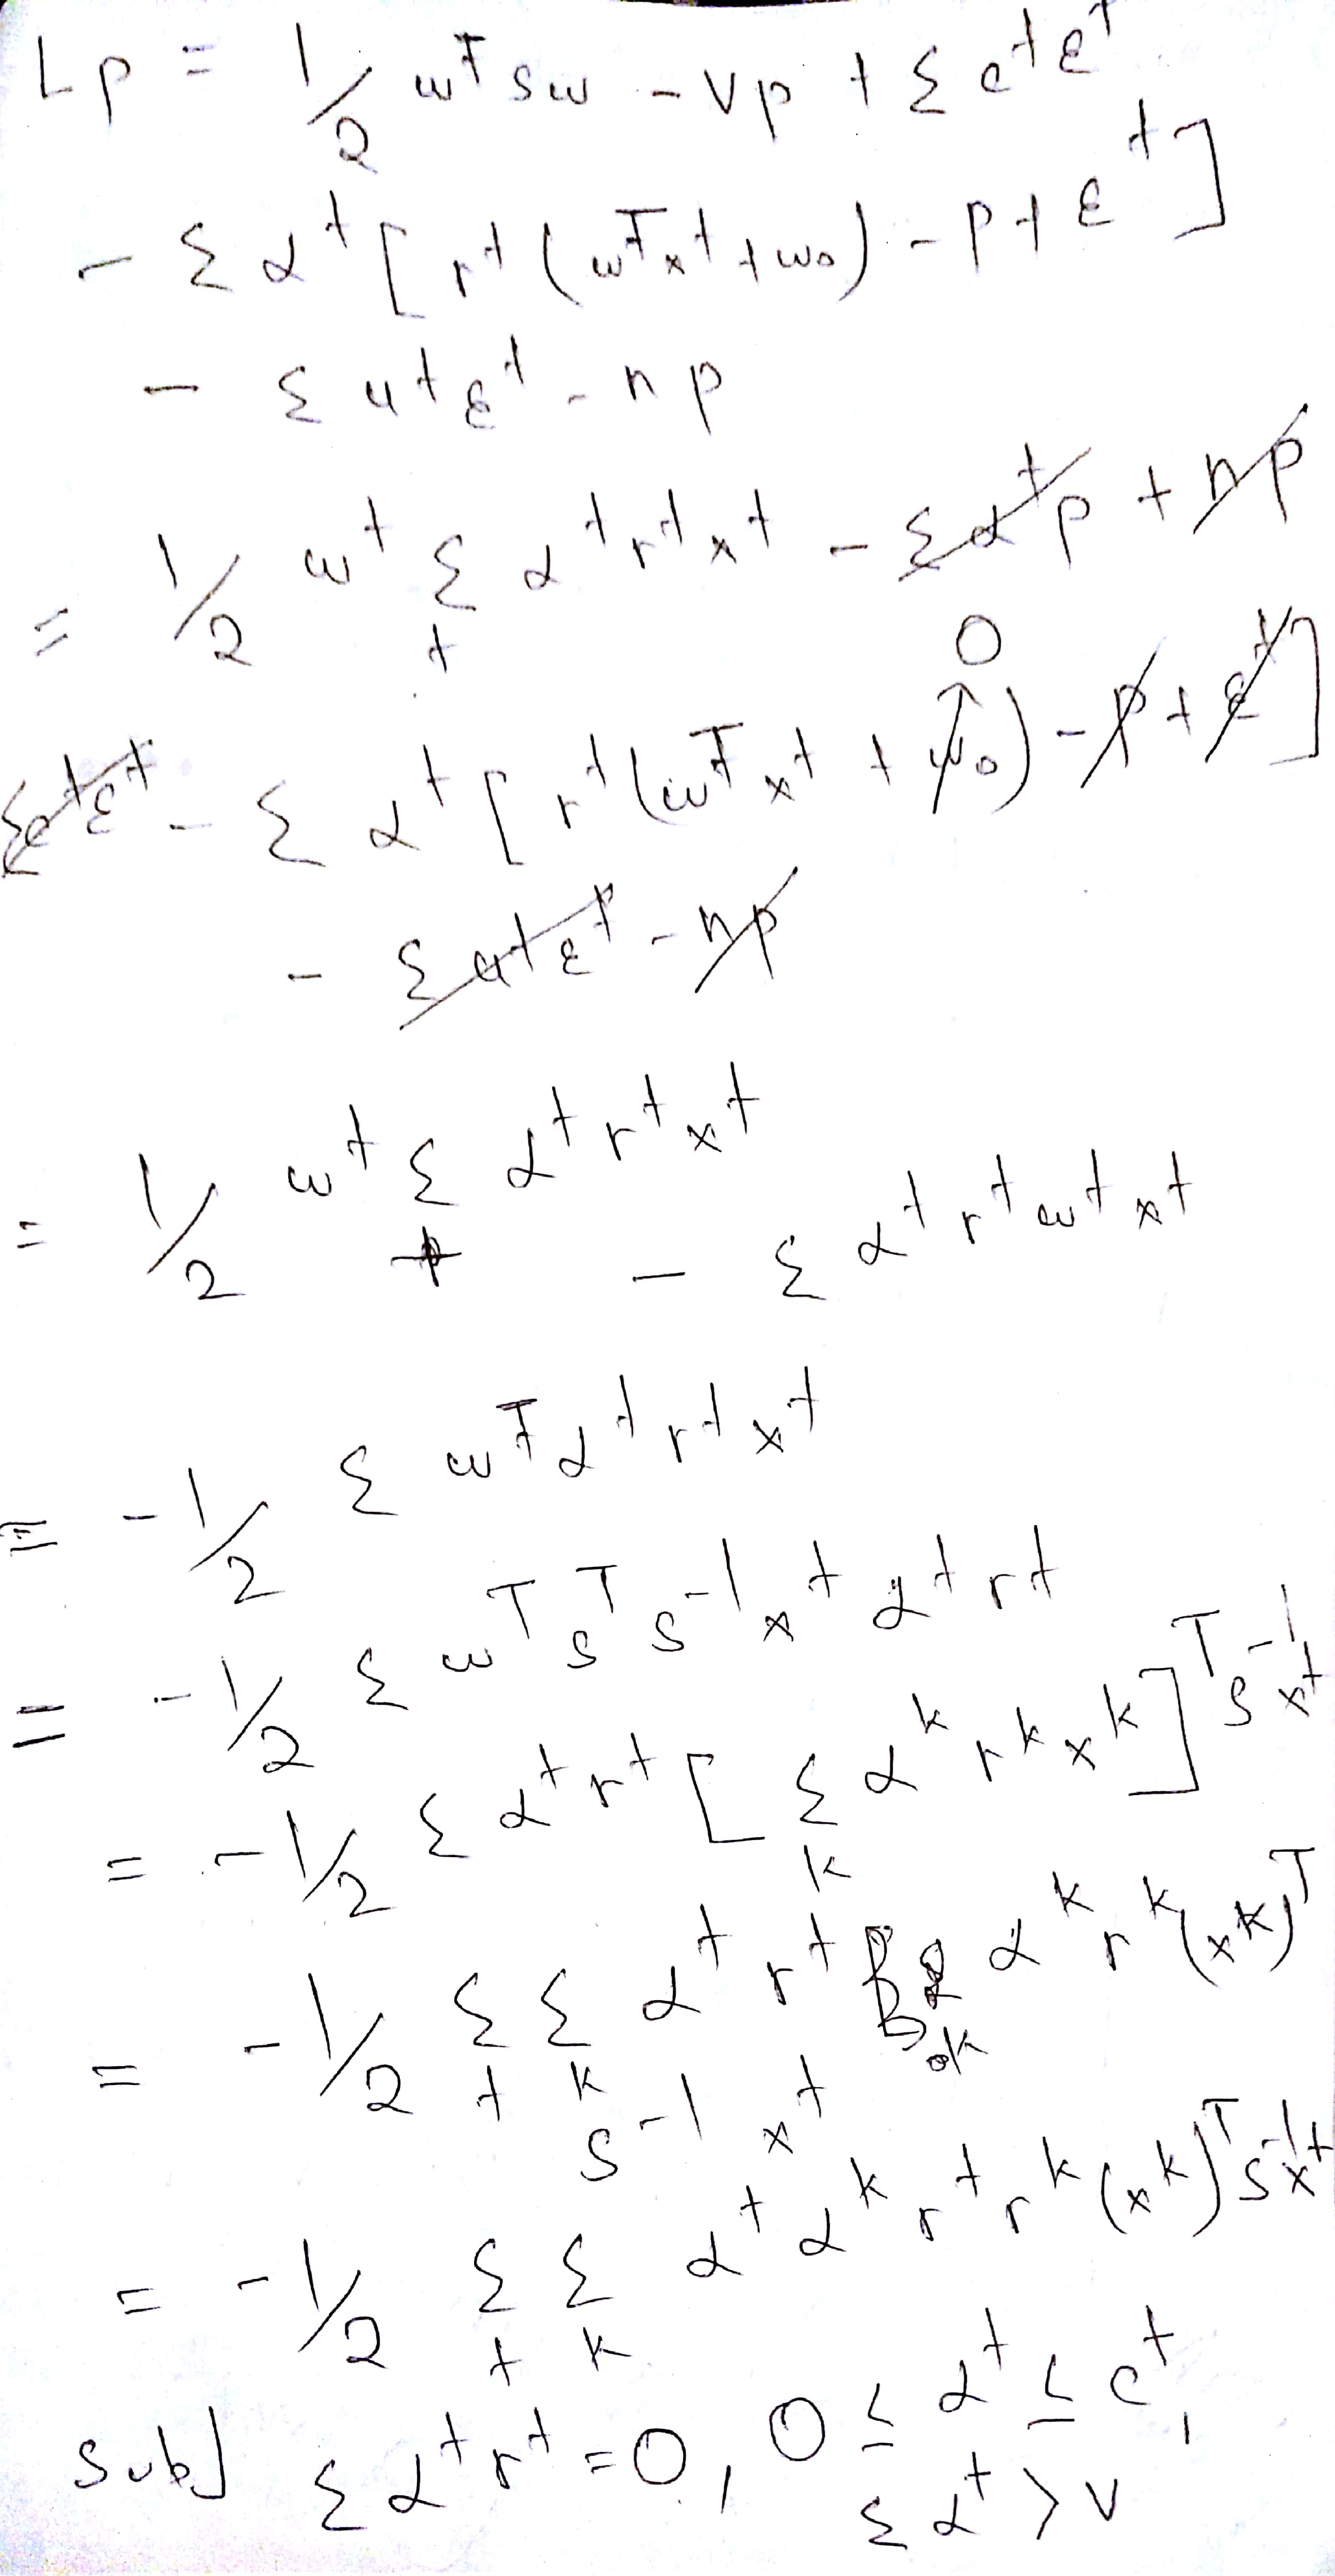 Lp = 1/2 w^T sw - vp + Σ c^t ε^t
- Σ α^t [ r^t (w^T x^t + w0) - p + ε^t ]
- Σ u^t ε^t - np
= 1/2 w^t Σ_t α^t r^t x^t - Σ α^t p + np
Σ c^t ε^t - Σ α^t [ r^t (w^T x^t + w0) - p + ε^t ]
0
- Σ u^t ε^t - np
= 1/2 w^t Σ_t α^t r^t x^t
- Σ α^t r^t w^t x^t
= -1/2 Σ w^T α^t r^t x^t
= -1/2 Σ w^T s^T s^-1 x^t α^t r^t
= -1/2 Σ α^t r^t [ Σ_k α^k r^k x^k ]^T s^-1 x^t
= -1/2 Σ_t Σ_k α^t r^t α^k r^k (x^k)^T
s^-1 x^t
= -1/2 Σ_t Σ_k α^t α^k r^t r^k (x^k)^T s^-1 x^t
subJ Σ α^t r^t = 0, 0 ≤ α^t ≤ c^t,
Σ α^t > v